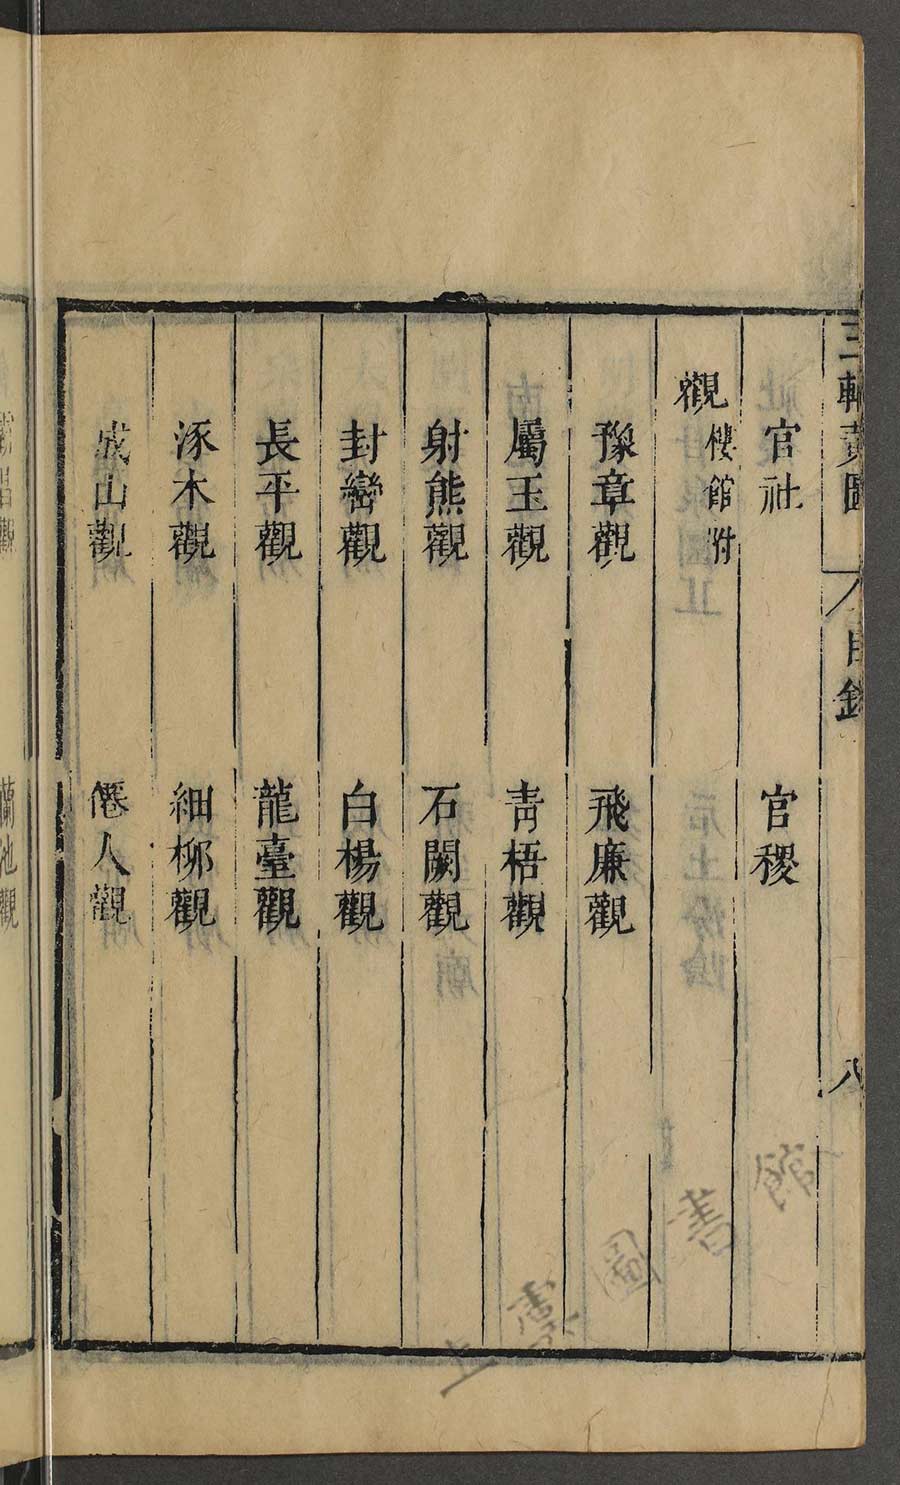 三輔黃圖 目錄 八
官社 官稷
觀 樓館附
豫章觀 飛廉觀
屬玉觀 青梧觀
射熊觀 石闕觀
封巒觀 白楊觀
長平觀 龍臺觀
涿木觀 細柳觀
成山觀 僊人觀
蘭池觀